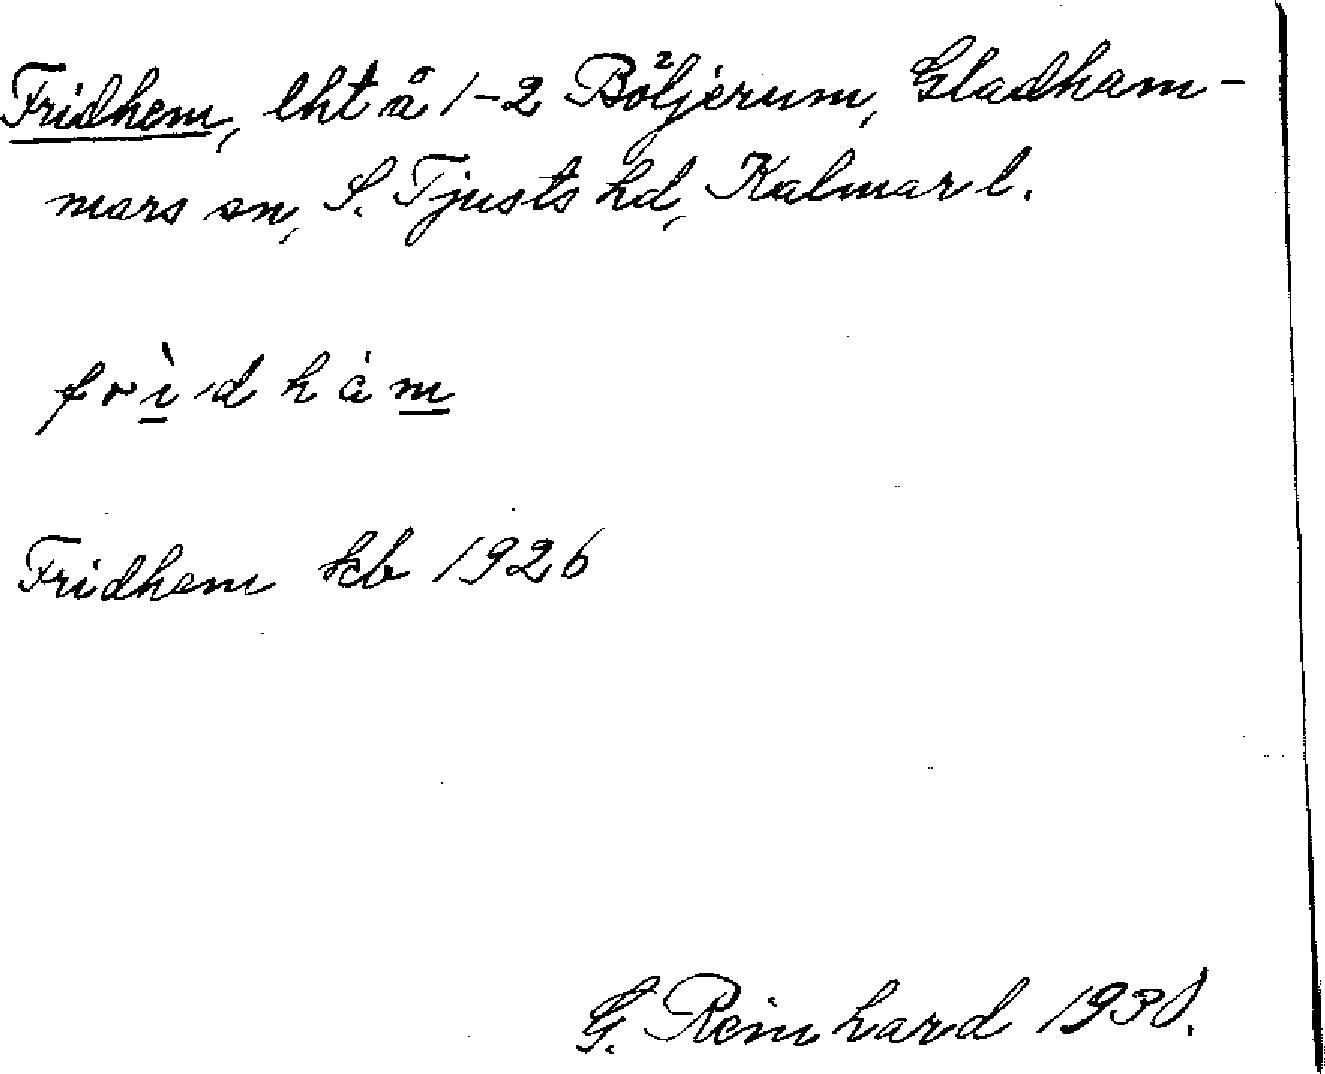 Fridhem, lht å 1-2 Böljerum, Gladham-
mars sn, S. Tjusts hd, Kalmar l.
frìdhám
Fridhem kb 1926
G. Reinhard